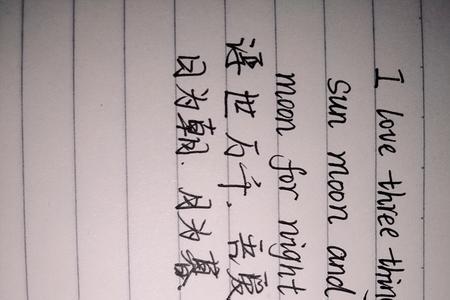 I love three thin
Sun moon and
moon for night
浮世万千.吾爱
日为朝.月为暮.